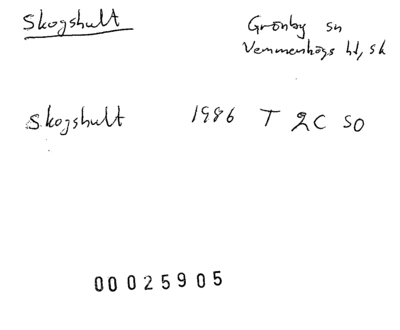 Skogshult
Grönby sn
Vemmenhögs hd, Sk
Skogshult 1986 T 2C SO
00025905